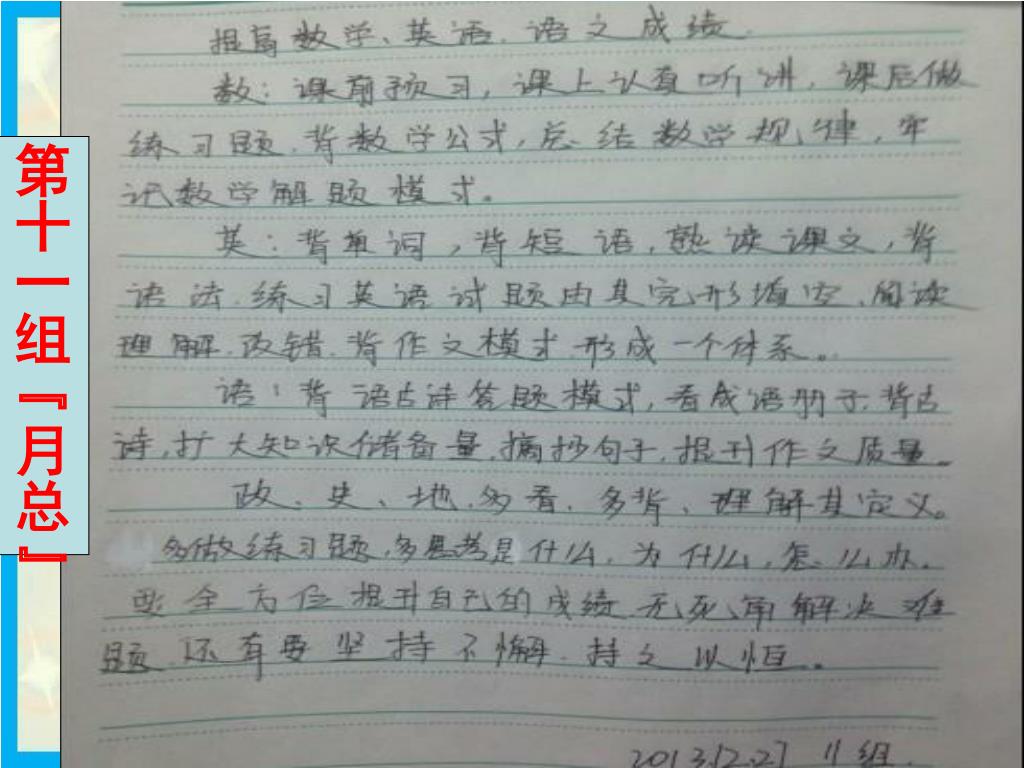 第十一组『月总』
提高数学、英语、语文成绩.
数：课前预习，课上认真听讲，课后做
练习题.背数学公式，总结数学规律，牢
记数学解题模式。
英：背单词，背短语，熟读课文，背
语法.练习英语试题由其完形填空.阅读
理解.改错.背作文模式.形成一个体系。
语：背语古诗答题模式，看成语册子.背古
诗，扩大知识储备量，摘抄句子，提升作文质量。
政、史、地.多看.多背、理解其定义。
多做练习题.多思考是什么，为什么，怎么办.
要全方位提升自己的成绩无死角解决难
题.还有要坚持不懈.持之以恒。
2013.12.27 11组.